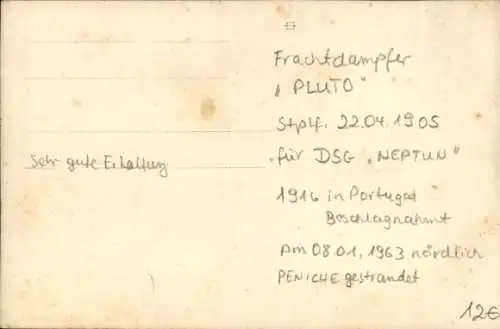 Frachtdampfer
„PLUTO"
Stplf. 22.04.1905
für DSG „NEPTUN"
Sehr gute Erhaltung
1916 in Portugal
Beschlagnahmt
Am 08.01.1963 nördlich
PENICHE gestrandet
12€